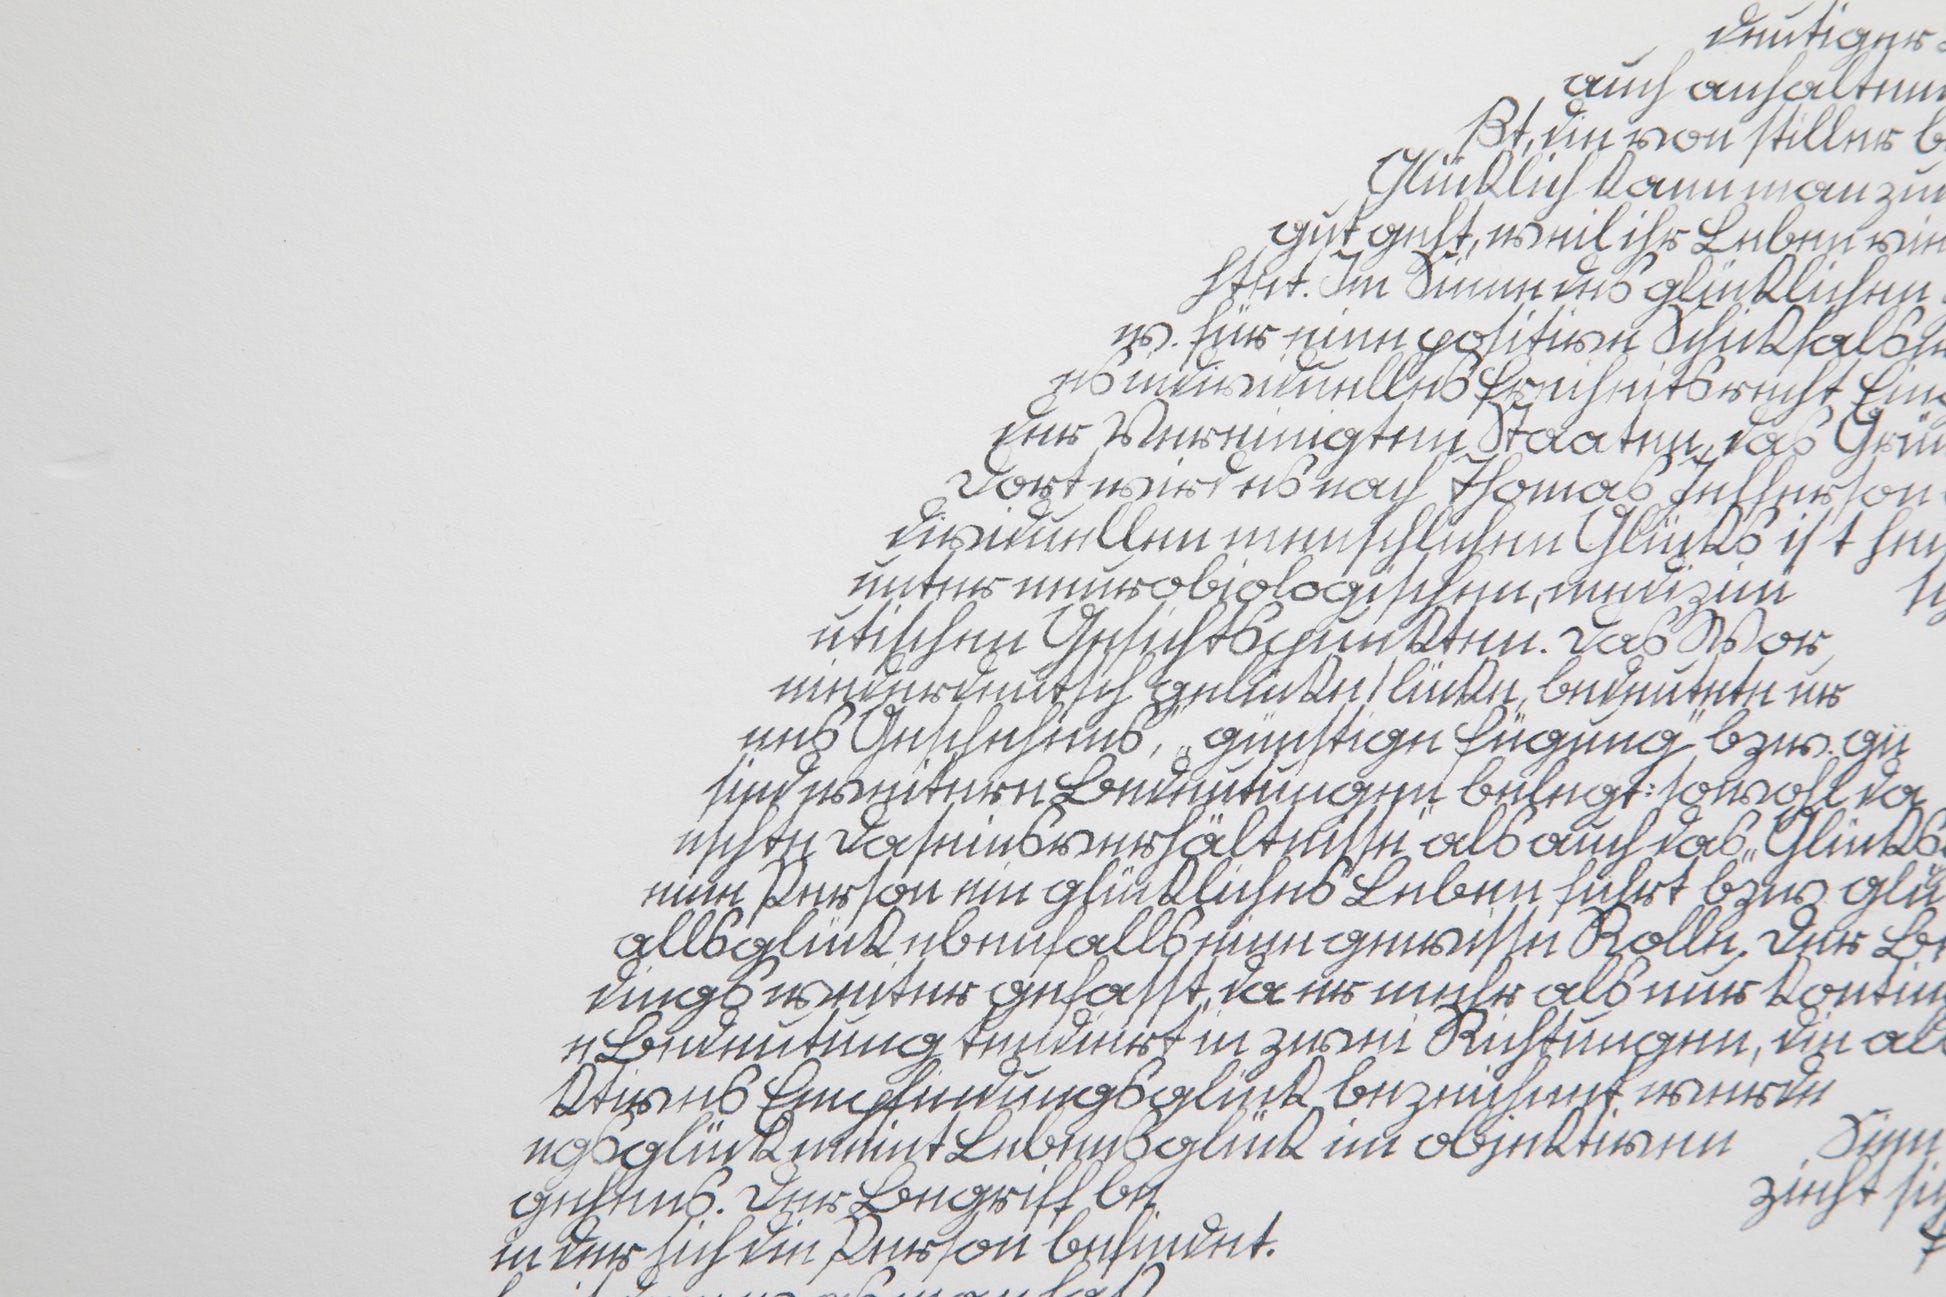 deutiger
auch anhaltend
ßt, die von stiller
Glücklich kann man zu
gut geht, weil ihr Leben vie
htet. Im Sinne des glücklichen
w. für eine positive Schicksals
es individuelles Freiheitsrecht
der Vereinigten Staaten, das
Dort wird es nach Thomas Jefferson
dividuellen menschlichen Glücks ist
unter neurobiologischen, medizin
utischen Gesichtspunkten. Das Wor
niederdeutsch gelucke/lucke, bedeutete ur
nes Geschehens“, „günstige Fügung“ bzw. gü
sind weitere Bedeutungen belegt: sowohl da
nschte Daseinsverhältnisse“ als auch das „Glücks
eine Person ein glückliches Leben führt bzw. glü
allsglück ebenfalls eine gewisse Rolle. Der Be
dings weiter gefasst, da er mehr als nur
e Bedeutung tendiert in zwei Richtungen, die als
ktives Empfindungsglück bezeichnet werde
ngsglück meint Lebensglück im objektiven Sinn
gehens. Der Begriff be zieht sich
in der sich die Person befindet.